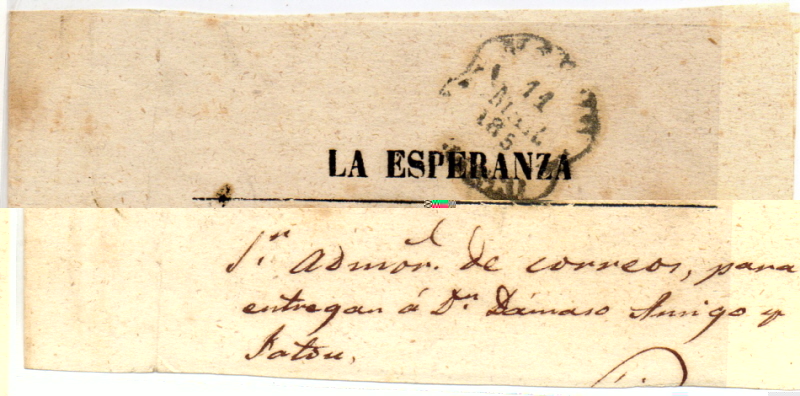 11
185
LA ESPERANZA
Sr. Admor. de correos, para
entregar á Dn. Dámaso Amigo y